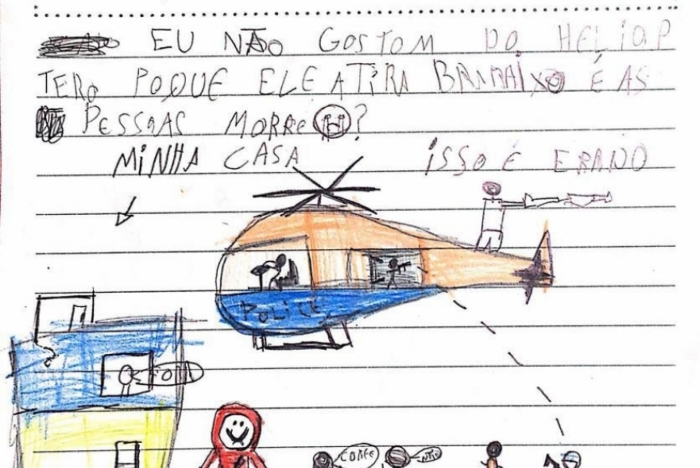 EU NÃO GOSTOM DO HELIOP
TERO POQUE ELE ATIRA BAMAIXO É AS
PESSOAS MORRE ?
MINHA CASA
ISSO É ERADO
POLICE
CORRE